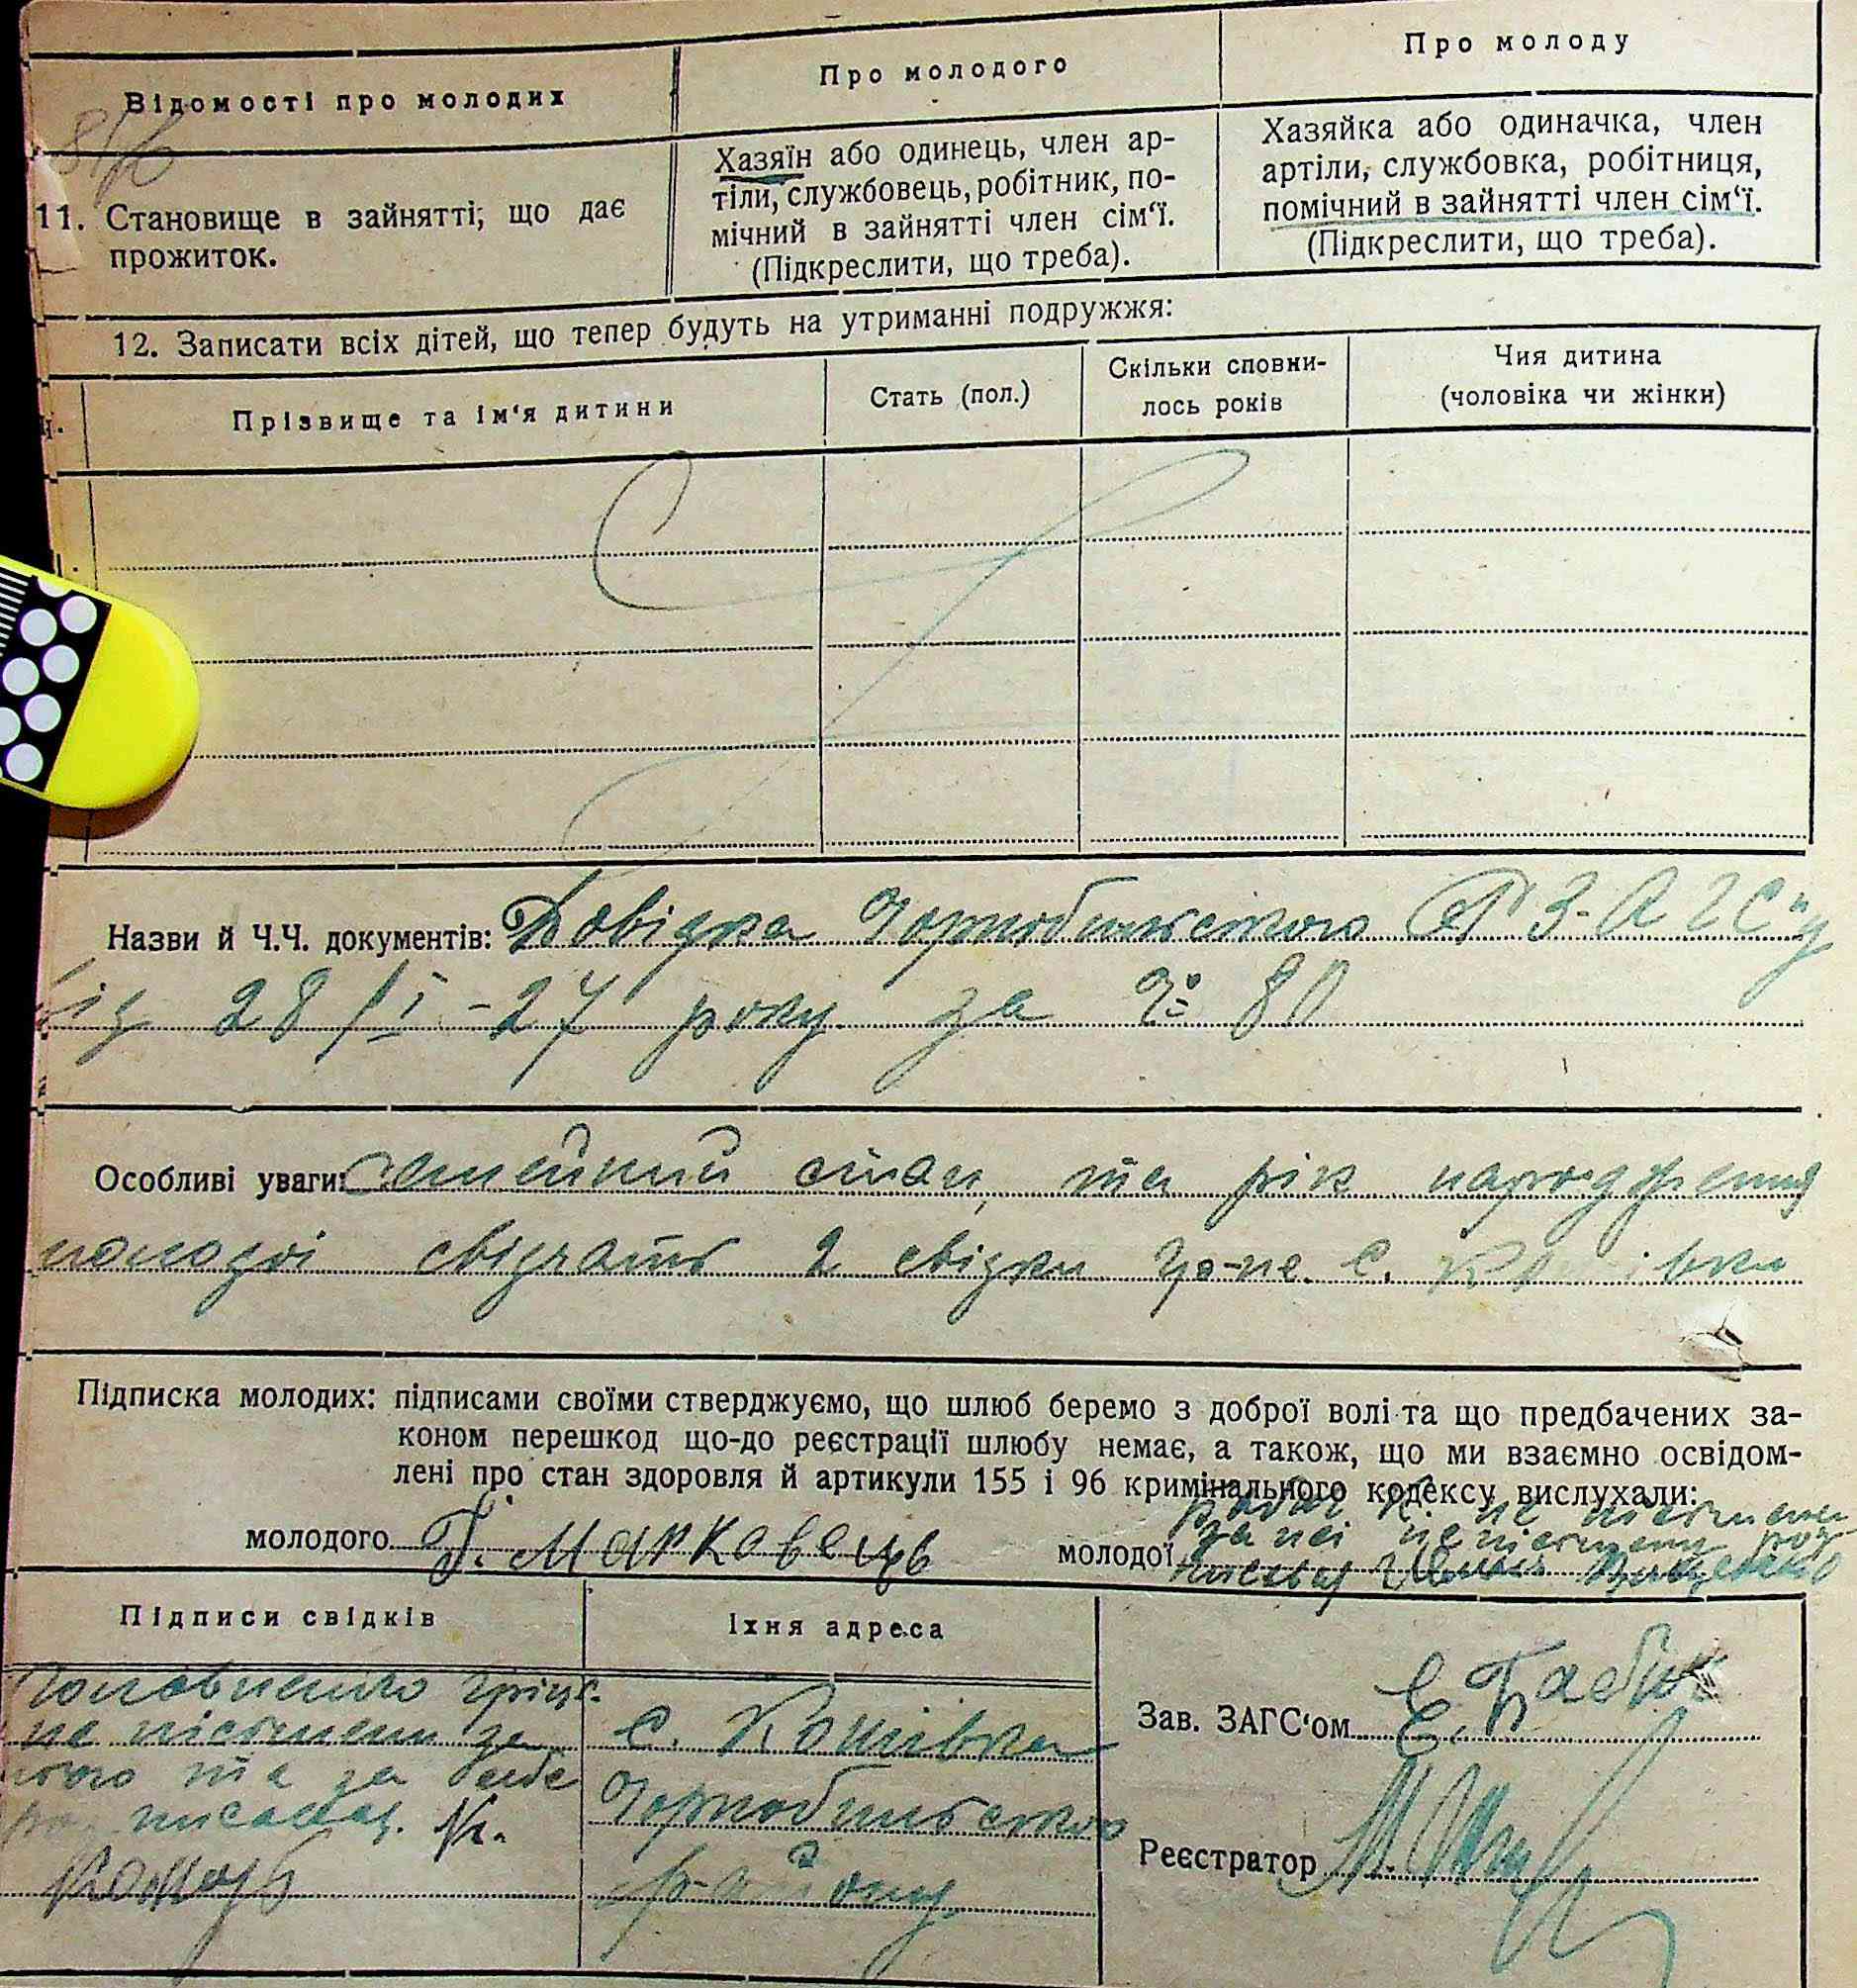 Відомості про молодих
Про молодого
Про молоду
11. Становище в зайнятті, що дає
прожиток.
Хазяїн або одинець, член ар-
тіли, службовець, робітник, по-
мічний в зайнятті член сім‘ї.
(Підкреслити, що треба).
Хазяйка або одиначка, член
артіли, службовка, робітниця,
помічний в зайнятті член сім‘ї.
(Підкреслити, що треба).
12. Записати всіх дітей, що тепер будуть на утриманні подружжя:
Прізвище та ім‘я дитини
Стать (пол.)
Скільки сповни-
лось років
Чия дитина
(чоловіка чи жінки)
Назви й Ч.Ч. документів: Довідка Чорнобильського ЗАГС"у
від 28/І-27 року за № 80
Особливі уваги: Семейний стан, та рік народження
молодої свідчать 2 свідки гр-не с.
Підписка молодих: підписами своїми стверджуємо, що шлюб беремо з доброї волі та що предбачених за-
коном перешкод що-до реєстрації шлюбу немає, а також, що ми взаємно освідом-
лені про стан здоровля й артикули 155 і 96 кримінального кодексу вислухали:
молодого Г. Марковець
молодої
Підписи свідків
Їхня адреса
не пісьмени за
його та за себе
с. Копівка
Чорнобильсько
району
Зав. ЗАГС‘ом
Реєстратор